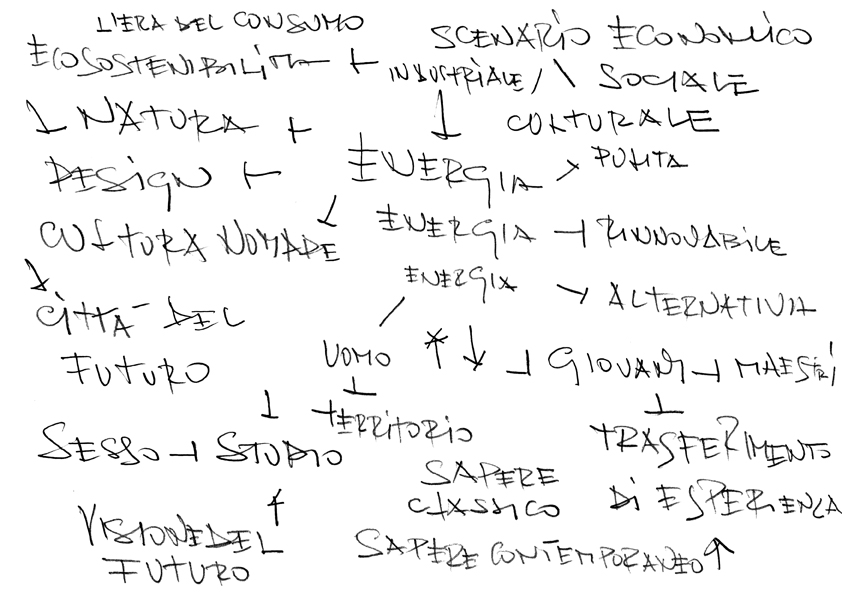 L'ERA DEL CONSUMO
ECOSOSTENIBILITA
NATURA
DESIGN
CULTURA NOMADE
CITTA' DEL
FUTURO
SESSO → STUDIO
VISIONE DEL
FUTURO
SCENARIO ECONOMICO
INDUSTRIALE / \ SOCIALE
CULTURALE
ENERGIA > PULITA
ENERGIA → RINNOVABILE
ENERGIA → ALTERNATIVA
UOMO ↑ ↓ → GIOVANI → MAESTRI
TERRITORIO
TRASFERIMENTO
DI ESPERIENZA
SAPERE
CLASSICO
SAPERE CONTEMPORANEO ↑